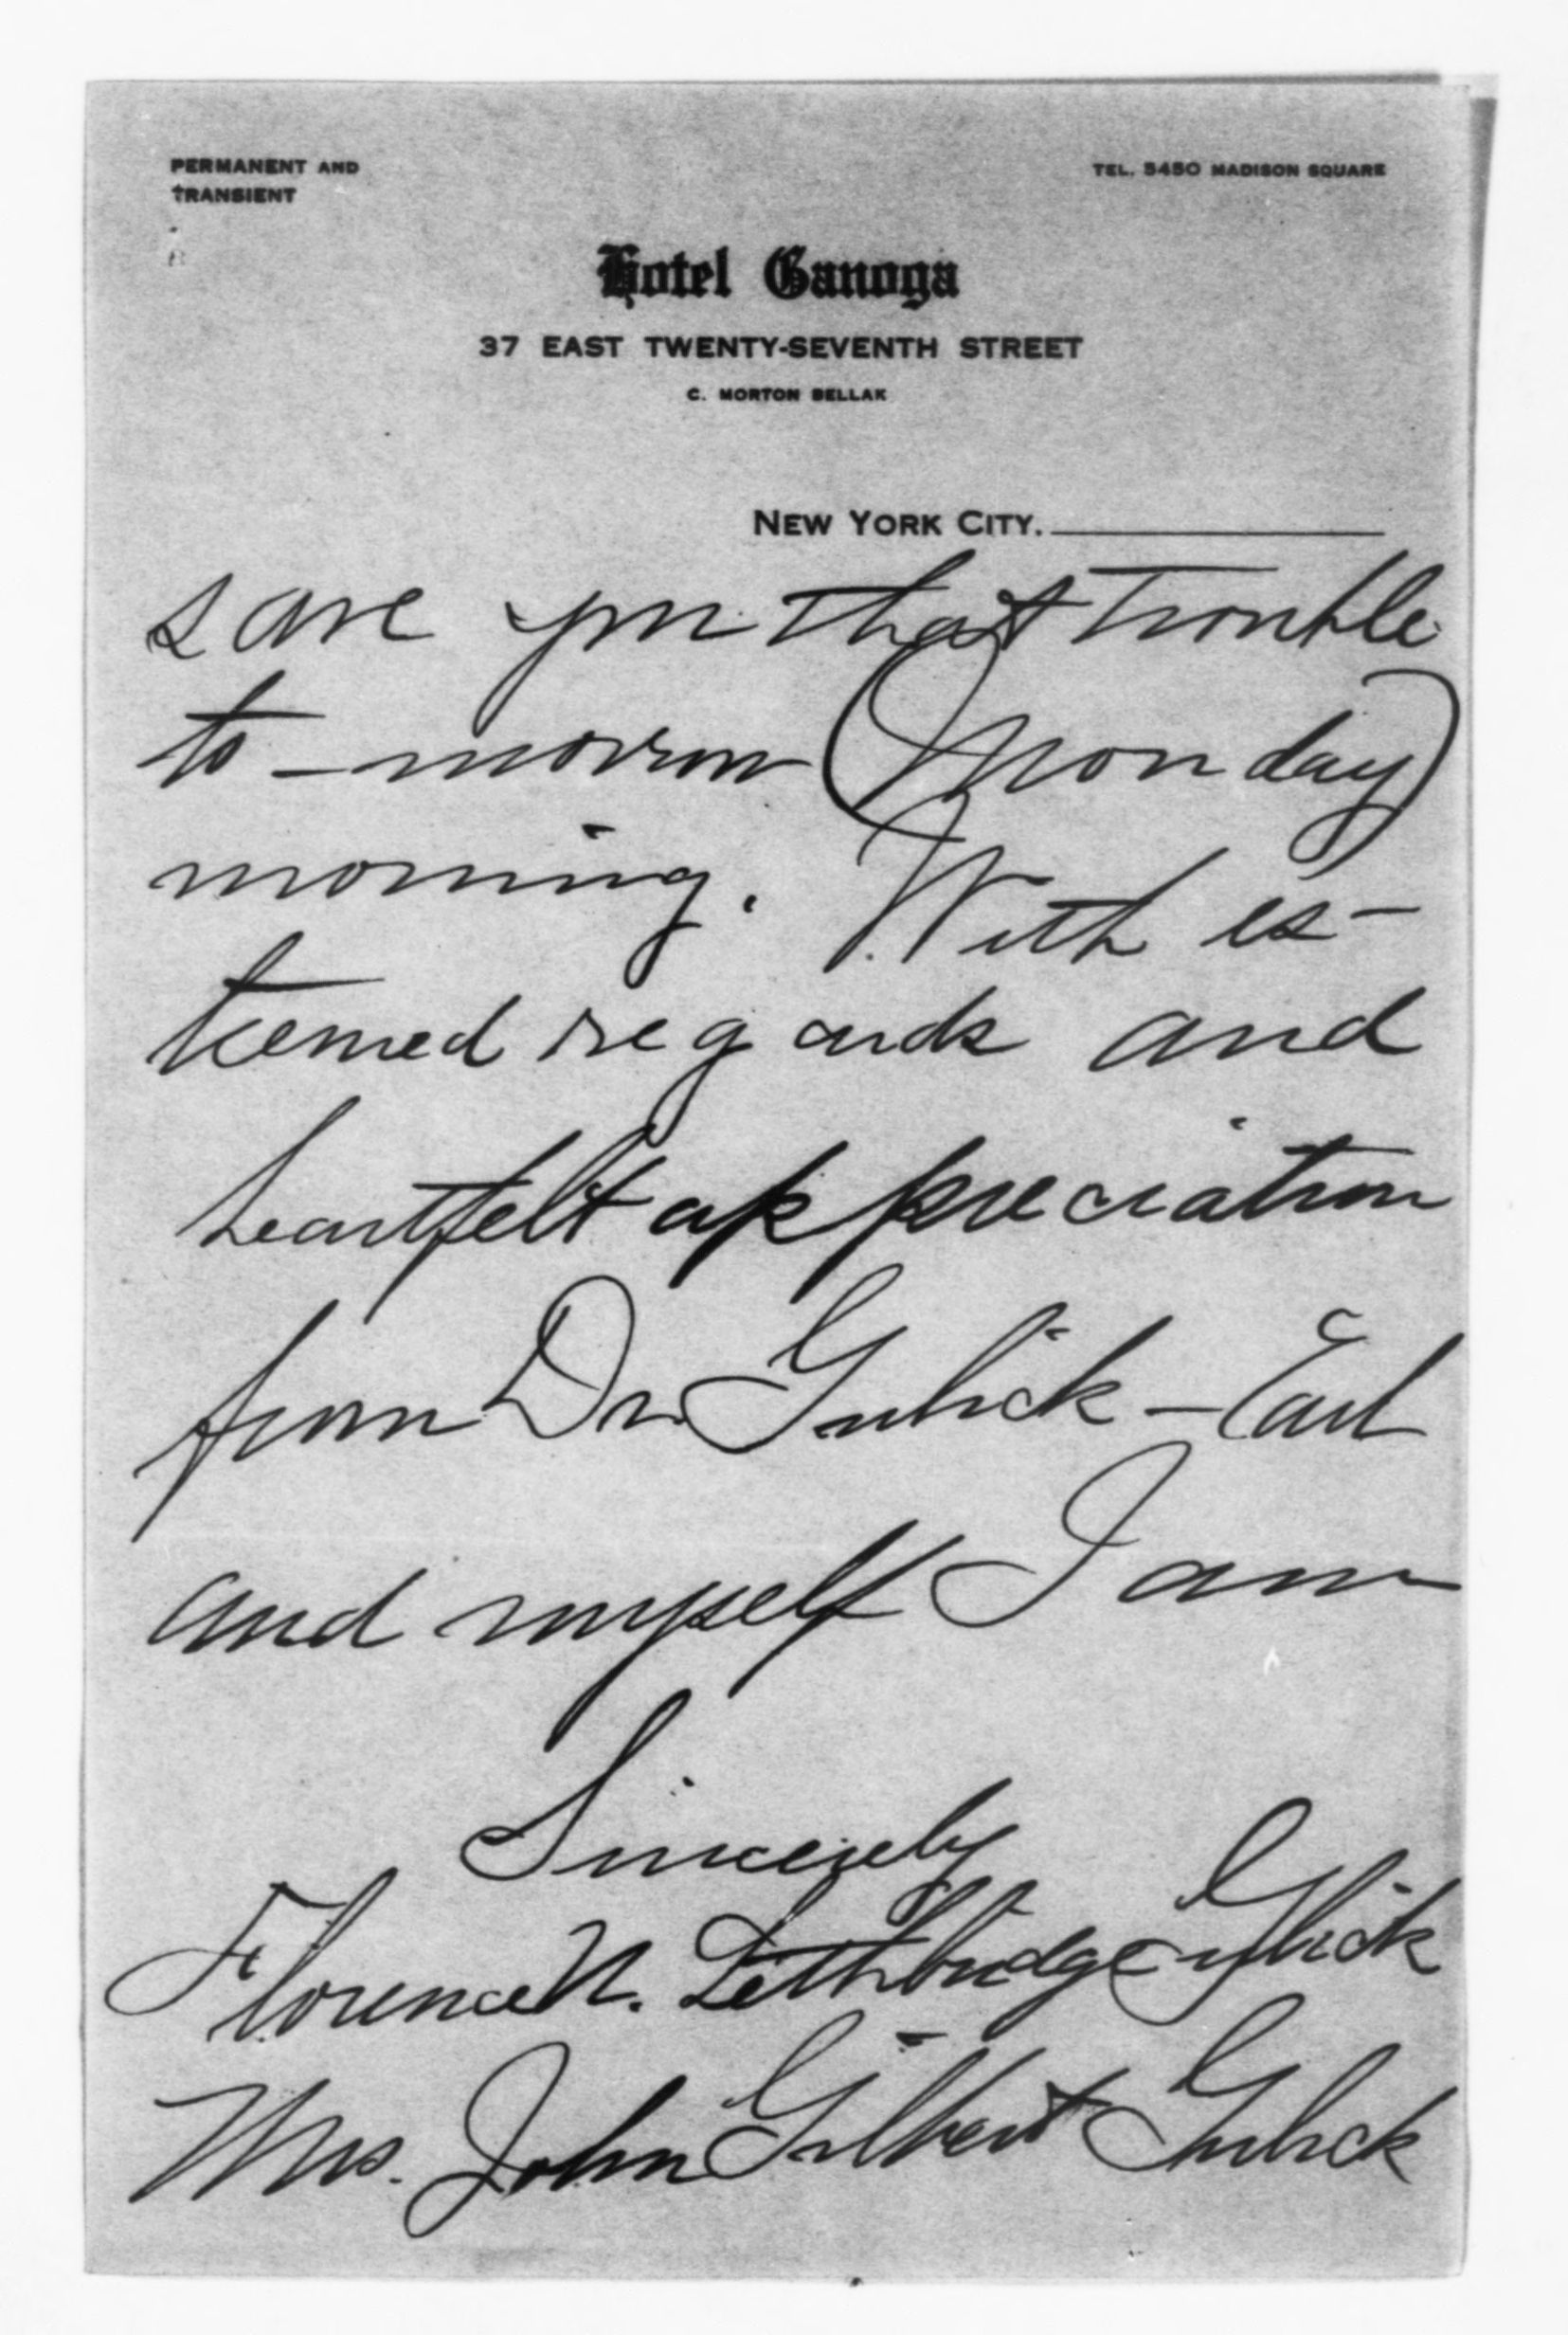 PERMANENT AND
TRANSIENT
TEL. 5450 MADISON SQUARE
Hotel Ganoga
37 EAST TWENTY-SEVENTH STREET
C. MORTON BELLAK
NEW YORK CITY.
save you that trouble
to-morrow (Monday)
morning. With es-
teemed regards and
heartfelt appreciation
from Dr Gulick - Earl
and myself I am
Sincerely
Florence N. Lethbridge Gulick
Mrs. John Gilbert Gulick